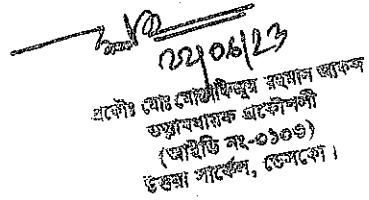 22/06/23
প্রকৌঃ মোঃ মোস্তাফিজুর রহমান
তত্ত্বাবধায়ক প্রকৌশলী
(আইডি নং-০১০৩)
উত্তরা সার্কেল, ডেসকো।